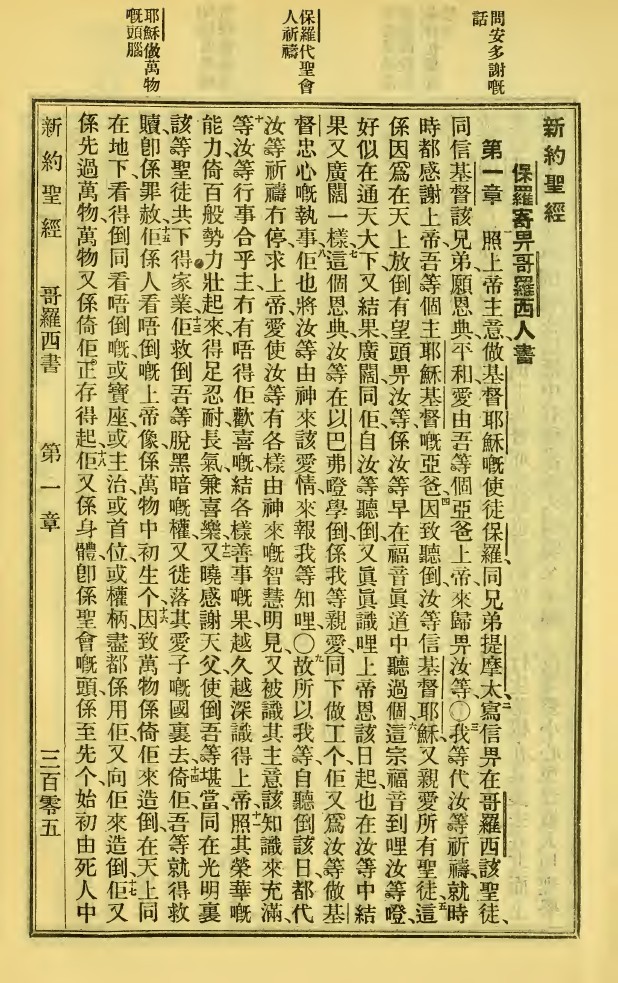 問安多謝嘅
話
保羅代聖會
人祈禱
耶穌做萬物
嘅頭腦
新約聖經
保羅寄畀哥羅西人書
第一章 一照上帝主意、做基督耶穌嘅使徒保羅、同兄弟提摩太、二寫信畀在哥羅西該聖徒、
同信基督該兄弟、願恩典平和、愛由吾等個亞爸上帝來歸畀汝等〇三我等代汝等祈禱、就時
時都感謝上帝、吾等個主耶穌基督嘅亞爸、四因致聽倒、汝等信基督耶穌、又親愛所有聖徒、五這
係因爲在天上放倒有望頭畀汝等、係汝等早在福音眞道中聽過個、六這宗福音到哩汝等噔、
好似在通天大下又結果、廣闊、同佢自汝等聽倒、又眞眞識哩上帝恩該日起、也在汝等中結
果又廣闊一樣、七這個恩典、汝等在以巴弗噔學倒、係我等親愛、同下做工个、佢又爲汝等做基
督忠心嘅執事、八佢也將汝等由神來該愛情、來報我等知哩〇九故所以我等自聽倒該日、都代
汝等祈禱冇停、求上帝、愛使汝等有各樣由神來嘅智慧明見、又被識其主意該知識來充滿、
十等汝等行事合乎主、冇有唔得佢歡喜嘅、結各樣善事嘅果、越久越深識得上帝、十一照其榮華嘅
能力、倚百般勢力、壯起來、得足忍耐長氣兼喜樂、十二又曉感謝天父、使倒吾等堪當同在光明裏
該等聖徒、共下得家業、十三佢救倒吾等脫黑暗嘅權、又徙落其愛子嘅國裏去、十四倚佢吾等就得救
贖、卽係罪赦、十五佢係人看唔倒嘅上帝像、係萬物中初生个、十六因致萬物係倚佢來造倒、在天上同
在地下、看得倒同看唔倒嘅、或寶座、或主治、或首位、或權柄、盡都係用佢、又向佢來造倒、十七佢又
係先過萬物、萬物又係倚佢正存得起、十八佢又係身體、卽係聖會嘅頭、係至先个、始初由死人中
新約聖經 哥羅西書 第一章 三百零五